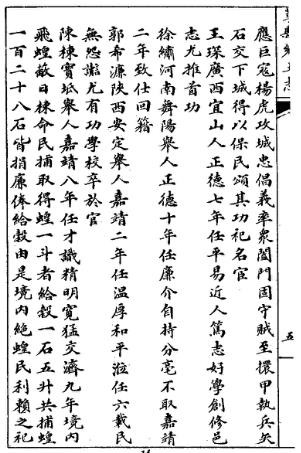 應巨寇楊虎攻城忠倡義率衆闔門固守賊至擐甲執兵矢
石交下城得以保民頌其功祀名宦
王琛廣西宜山人正德七年任平易近人篤志好學創修邑
志尤推首功
徐繡河南舞陽舉人正德十年任廉介自持分毫不取嘉靖
二年致仕回籍
郭希濂陜西安定舉人嘉靖二年任温厚和平涖任六載民
無怨讟尤有功學校卒於官
陳棟寶坻舉人嘉靖八年任才識精明寬猛交濟九年境内
飛蝗蔽日棟命民捕取得蝗一斗者給穀一石五升共捕蝗
一百二十八石皆捐廉俸給穀由是境内絶蝗民利賴之祀
五